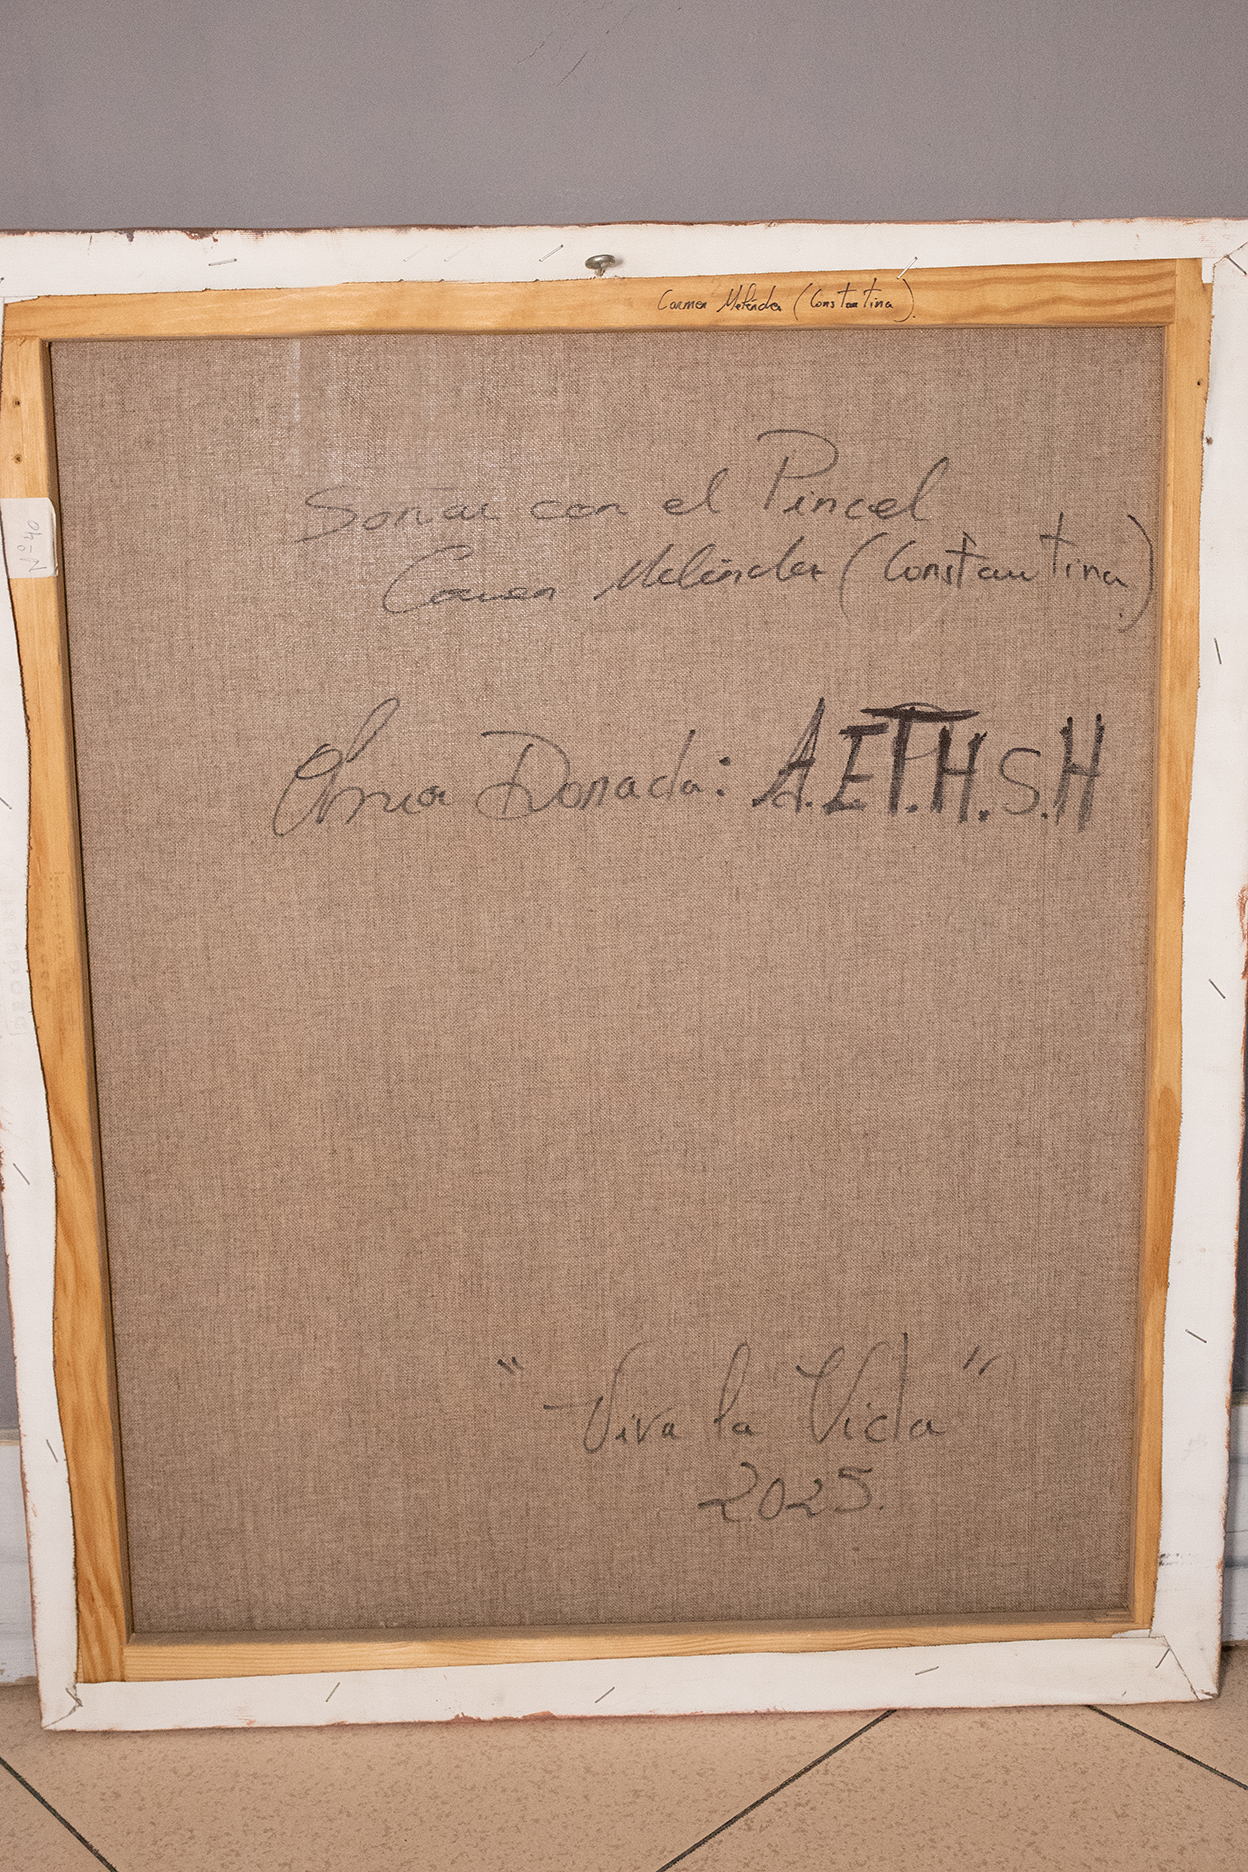 Carmen Meléndez (Constantina).
Soñar con el Pincel
Carmen Meléndez (Constantina).
Nº 40
Obra Donada: A.E.T.H.S.H
" Viva la Vida "
2025.